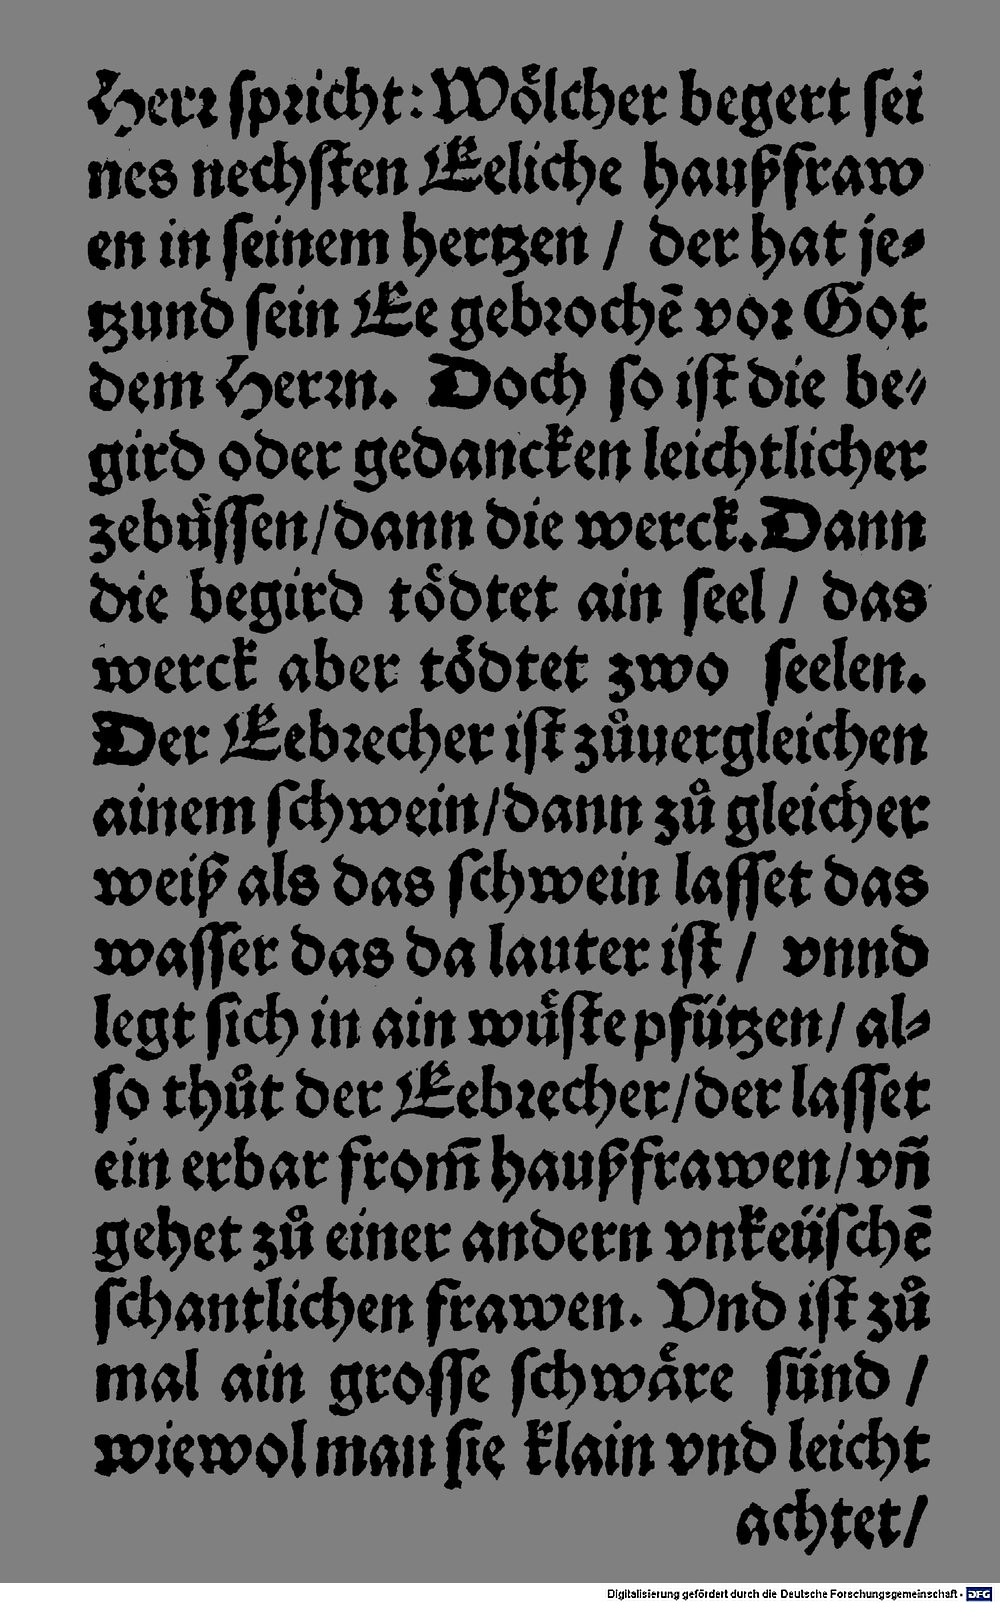 Herꝛ ſpꝛicht: Woͤlcher begert ſei
nes nechſten Eeliche haußfraw
en in ſeinem hertzen / der hat je⸗
tzund ſein Ee gebꝛochē voꝛ Got
dem Herꝛn. Doch ſo iſt die be⸗
gird oder gedancken leichtlicher
zebuͤſſen/dann die werck. Dann
die begird toͤdtet ain ſeel / das
werck aber toͤdtet zwo ſeelen.
Der Eebꝛecher iſt zuͦuergleichen
ainem ſchwein/dann zuͦ gleicher
weiß als das ſchwein laſſet das
waſſer das da lauter iſt / vnnd
legt ſich in ain wuͤſte pfützen/ al⸗
ſo thuͦt der Eebꝛecher/der laſſet
ein erbar from̄ haußfrawen/vn̄
gehet zuͦ einer andern vnkeüſchē
ſchantlichen frawen. Vnd iſt zuͦ
mal ain groſſe ſchwaͤre ſünd /
wiewol man ſie klain vnd leicht
achtet/
Digitalisierung gefördert durch die Deutsche Forschungsgemeinschaft - DFG